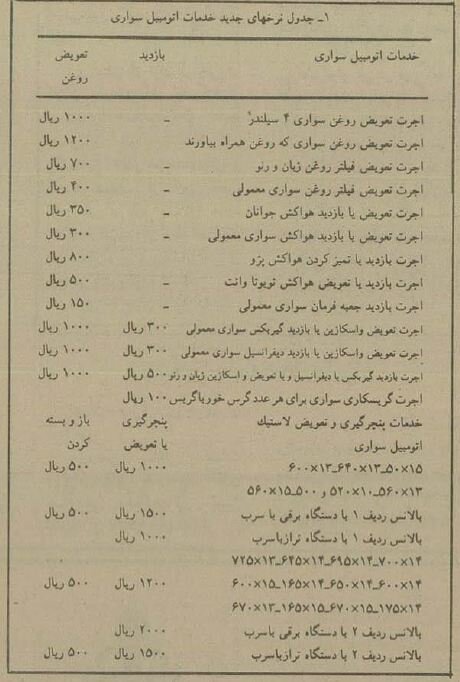 ۱ـ جدول نرخهای جدید خدمات اتومبیل سواری
خدمات اتومبیل سواری بازدید تعویض
روغن
اجرت تعویض روغن سواری ۴ سیلندر ـ ۱۰۰۰ ریال
اجرت تعویض روغن سواری که روغن همراه بیاورند ۱۲۰۰ ریال
اجرت تعویض فیلتر روغن ژیان و رنو ـ ۷۰۰ ریال
اجرت تعویض فیلتر روغن سواری معمولی ـ ۴۰۰ ریال
اجرت تعویض یا بازدید هواکش جوانان ـ ۳۵۰ ریال
اجرت تعویض یا بازدید هواکش سواری معمولی ـ ۳۰۰ ریال
اجرت بازدید یا تمیز کردن هواکش پژو ۸۰۰ ریال
اجرت بازدید یا تعویض هواکش تویوتا وانت ـ ۵۰۰ ریال
اجرت بازدید جعبه فرمان سواری معمولی ـ ۱۵۰ ریال
اجرت تعویض واسکازین یا بازدید گیربکس سواری معمولی ۳۰۰ ریال ۱۰۰۰ ریال
اجرت تعویض واسکازین یا بازدید دیفرانسیل سواری معمولی ۳۰۰ ریال ۱۰۰۰ ریال
اجرت بازدید گیربکس یا دیفرانسیل و یا تعویض و اسکازین ژیان و رنو ۵۰۰ ریال ۱۰۰۰ ریال
اجرت گریسکاری سواری برای هر عدد گرس خور یا گریس ۱۰۰ ریال
خدمات پنچرگیری و تعویض لاستیک پنچرگیری باز و بسته
اتومبیل سواری یا تعویض کردن
۱۵×۵۰ـ۱۳×۶۴۰ـ۱۳×۶۰۰ ۱۰۰۰ ریال ۵۰۰ ریال
۱۳×۵۶۰ـ۱۰×۵۲۰ و ۵۰۰ـ۱۵×۵۶۰
بالانس ردیف ۱ با دستگاه برقی با سرب ۱۵۰۰ ریال ۵۰۰ ریال
بالانس ردیف ۱ با دستگاه ترازباسرب ۱۰۰۰ ریال
۱۴×۷۰۰ـ۱۴×۶۹۵ـ۱۴×۶۴۵ـ۱۳×۷۲۵
۱۴×۶۰۰ـ۱۴×۶۵۰ـ۱۴×۱۶۵ـ۱۵×۶۰۰ ۱۲۰۰ ریال ۵۰۰ ریال
۱۴×۱۷۵ـ۱۵×۶۷۰ـ۱۵×۱۶۵ـ۱۳×۶۷۰
بالانس ردیف ۲ با دستگاه برقی باسرب ۲۰۰۰ ریال
بالانس ردیف ۲ با دستگاه ترازباسرب ۱۵۰۰ ریال ۵۰۰ ریال